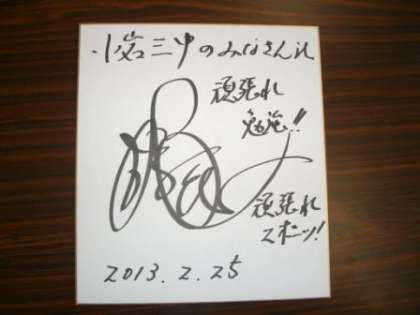 小岩三中のみなさんへ
頑張れ
勉強!!
頑張れ
スポーツ!
2013.2.25